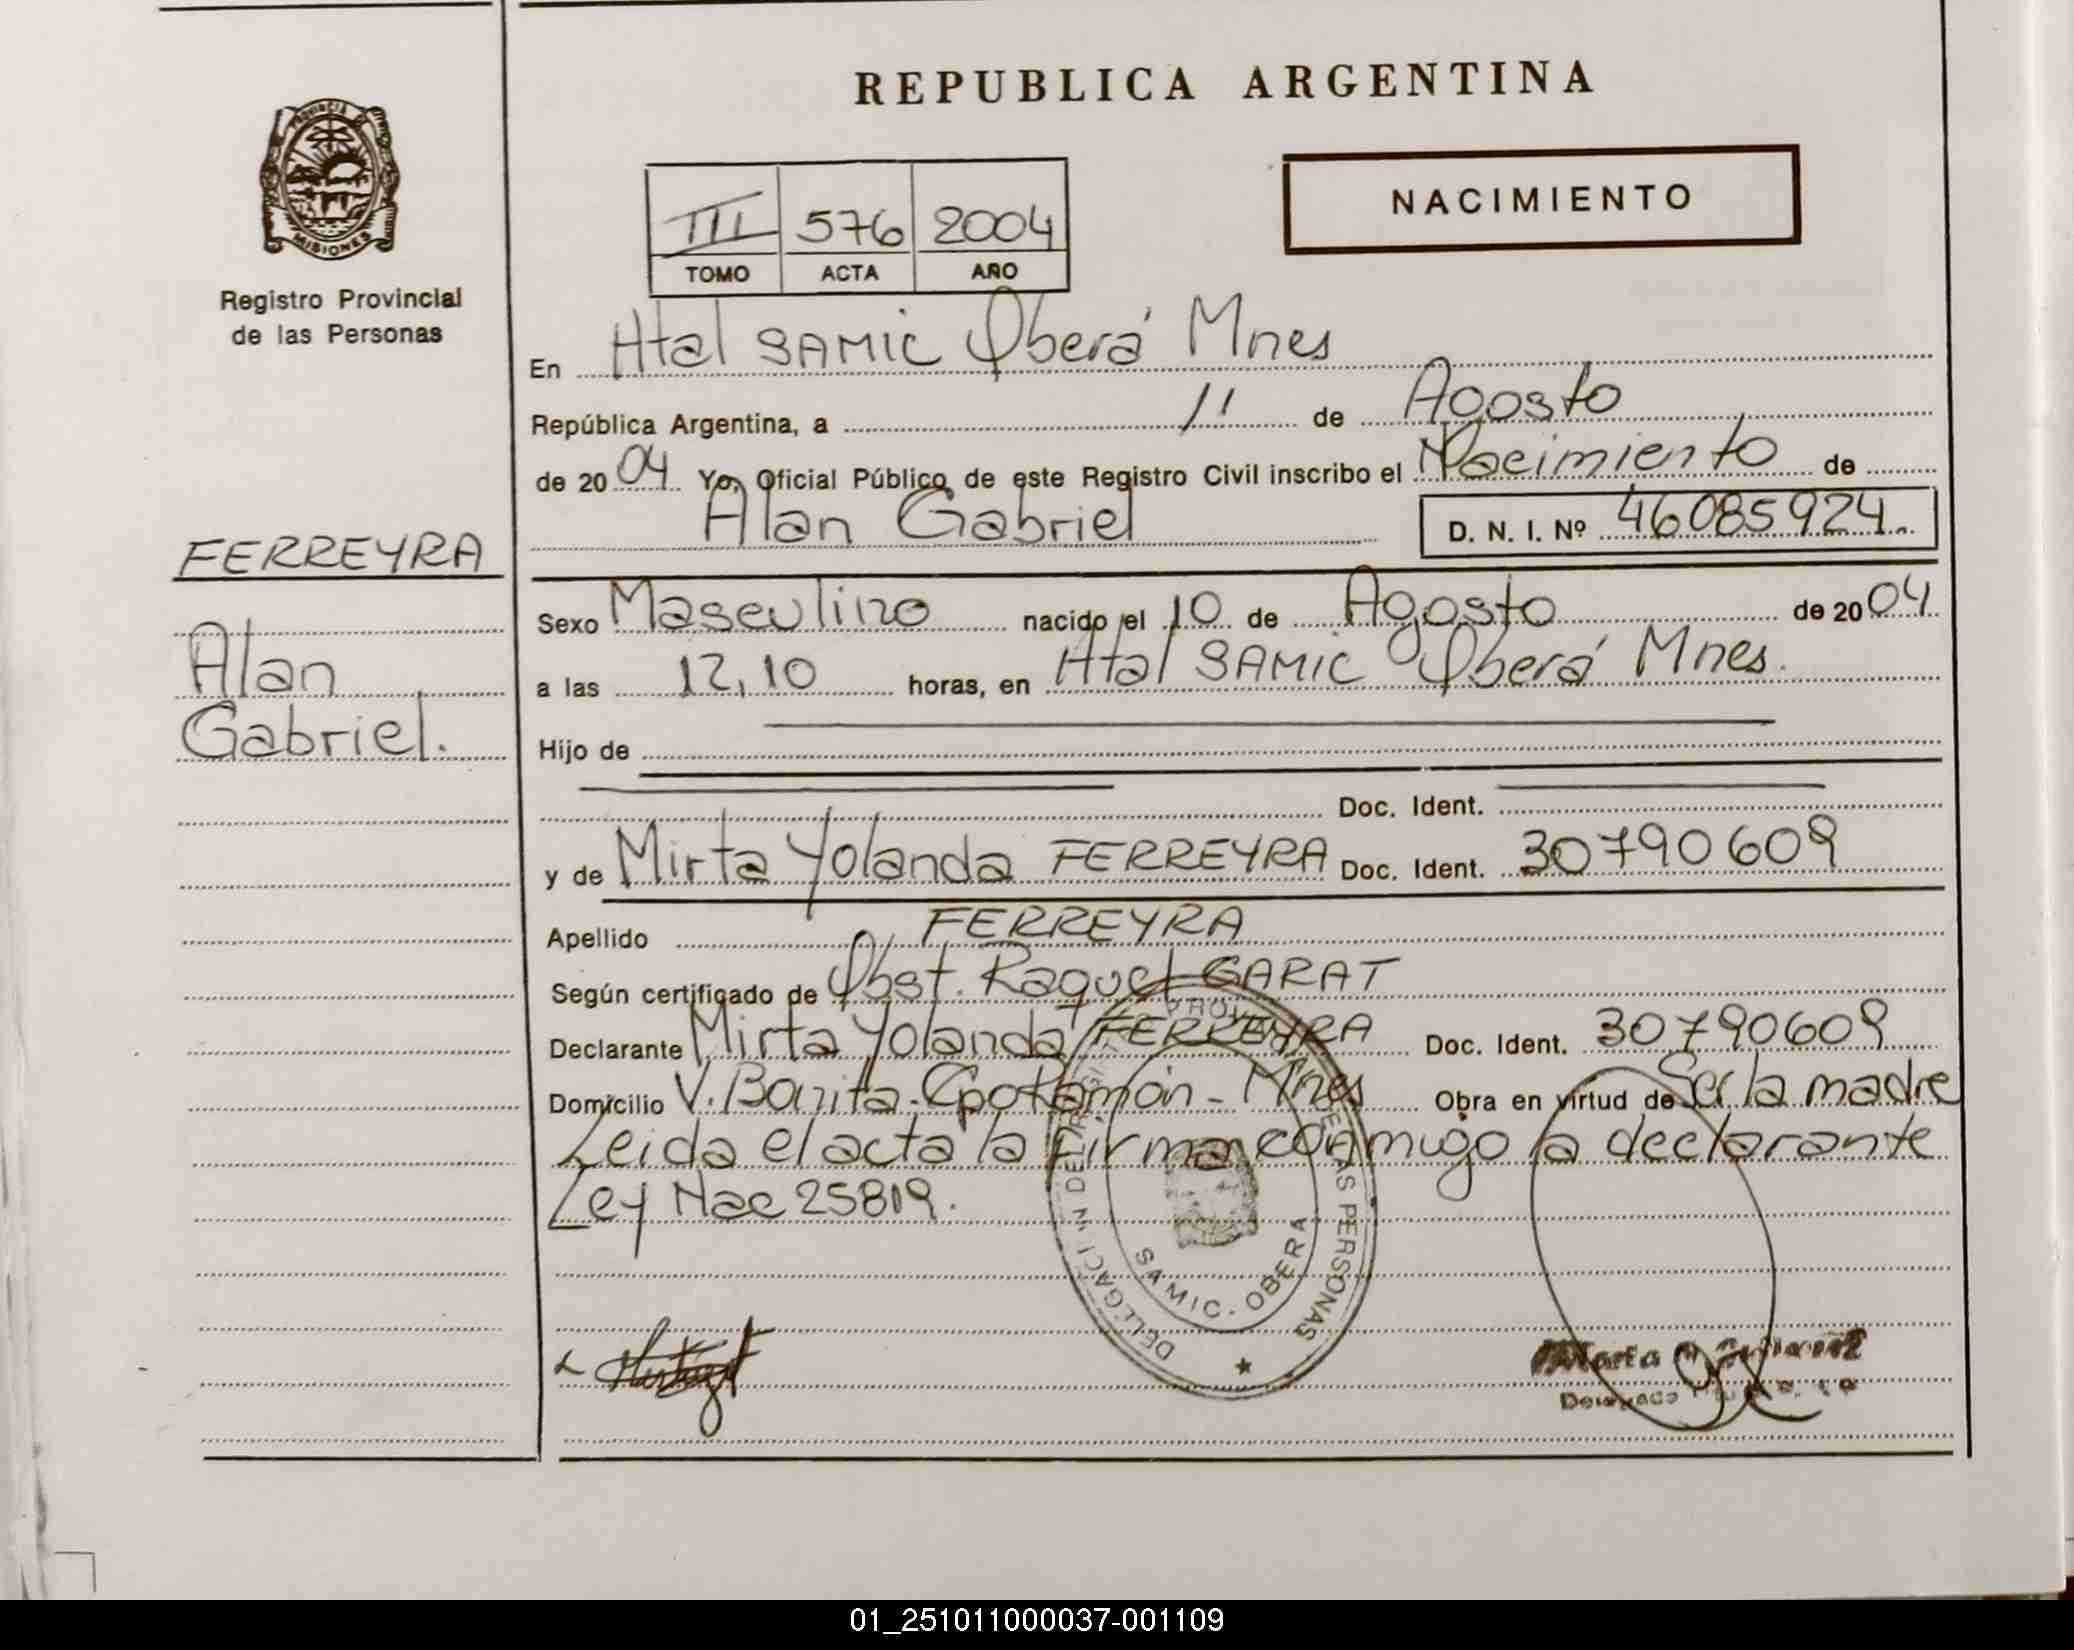 REPUBLICA ARGENTINA
PROVINCIA DE
MISIONES
Registro Provincial
de las Personas
NACIMIENTO
III 576 2004
TOMO ACTA AÑO
En Htal SAMIC Oberá Mnes
República Argentina, a 11 de Agosto
de 2004 Yo, Oficial Público de este Registro Civil inscribo el Nacimiento de
Alan Gabriel D. N. I. Nº 46085924.
FERREYRA
Alan
Gabriel.
Sexo Masculino nacido el 10 de Agosto de 2004
a las 12,10 horas, en Htal SAMIC Oberá Mnes.
Hijo de
Doc. Ident.
y de Mirta Yolanda FERREYRA Doc. Ident. 30790609
Apellido FERREYRA
Según certificado de Obst. Raquel GARAT
Declarante Mirta Yolanda FERREYRA Doc. Ident. 30790609
Domicilio V. Bonita-Cpo Ramón-Mnes Obra en virtud de Ser la madre
Leida el acta la firma conmigo la declarante
Ley Nac 25819.
SAMIC-OBERA
DE LAS PERSONAS
01_251011000037-001109